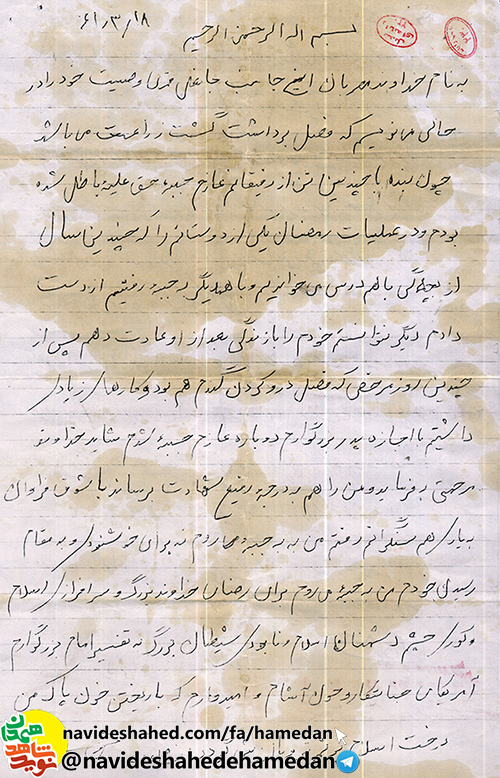 ۶۱/۳/۱۸
بسم اله الرحمن الرحیم
به نام خداوند مهربان اینجانب وصیت خود را در
حالی می نویسم که فصل برداشت گشت زراعت می باشد
چون بنده با چندین تن از رفیقانم عازم جبهه حق علیه باطل شده
بودم و در عملیات رمضان یکی از دوستانم را که چندین سال
از بچه گی باهم درس می خواندیم و با همدیگر به جبهه رفتیم از دست
دادم دیگر نتوانستم خودم را با زندگی بعد از او عادت دهم پس از
چندین روز مرخصی که فصل درو کردن گندم هم بود و کارهای زیادی
داشتیم با اجازه پدر بزرگوارم دوباره عازم جبهه شدم شاید خداوند
مرحمتی بفرماید و من را هم به درجه رفیع شهادت برساند با شوق فراوان
به یاری هم سنگرانم رفتم من به جبهه می روم نه برای خوشنودی و به مقام
رسیدن خودم من به جبهه می روم برای رضای خداوند بزرگ و سرافرازی اسلام
و کوری چشم دشمنان اسلام و نابودی شیطان بزرگ به تفسیر امام بزرگوارم
آمریکای جنایتکار و خون آشام و امیدوارم که با ریختن خون پاک من
درخت اسلام
navideshahed.com/fa/hamedan
@navideshahedehamedan
نوید شاهد همدان